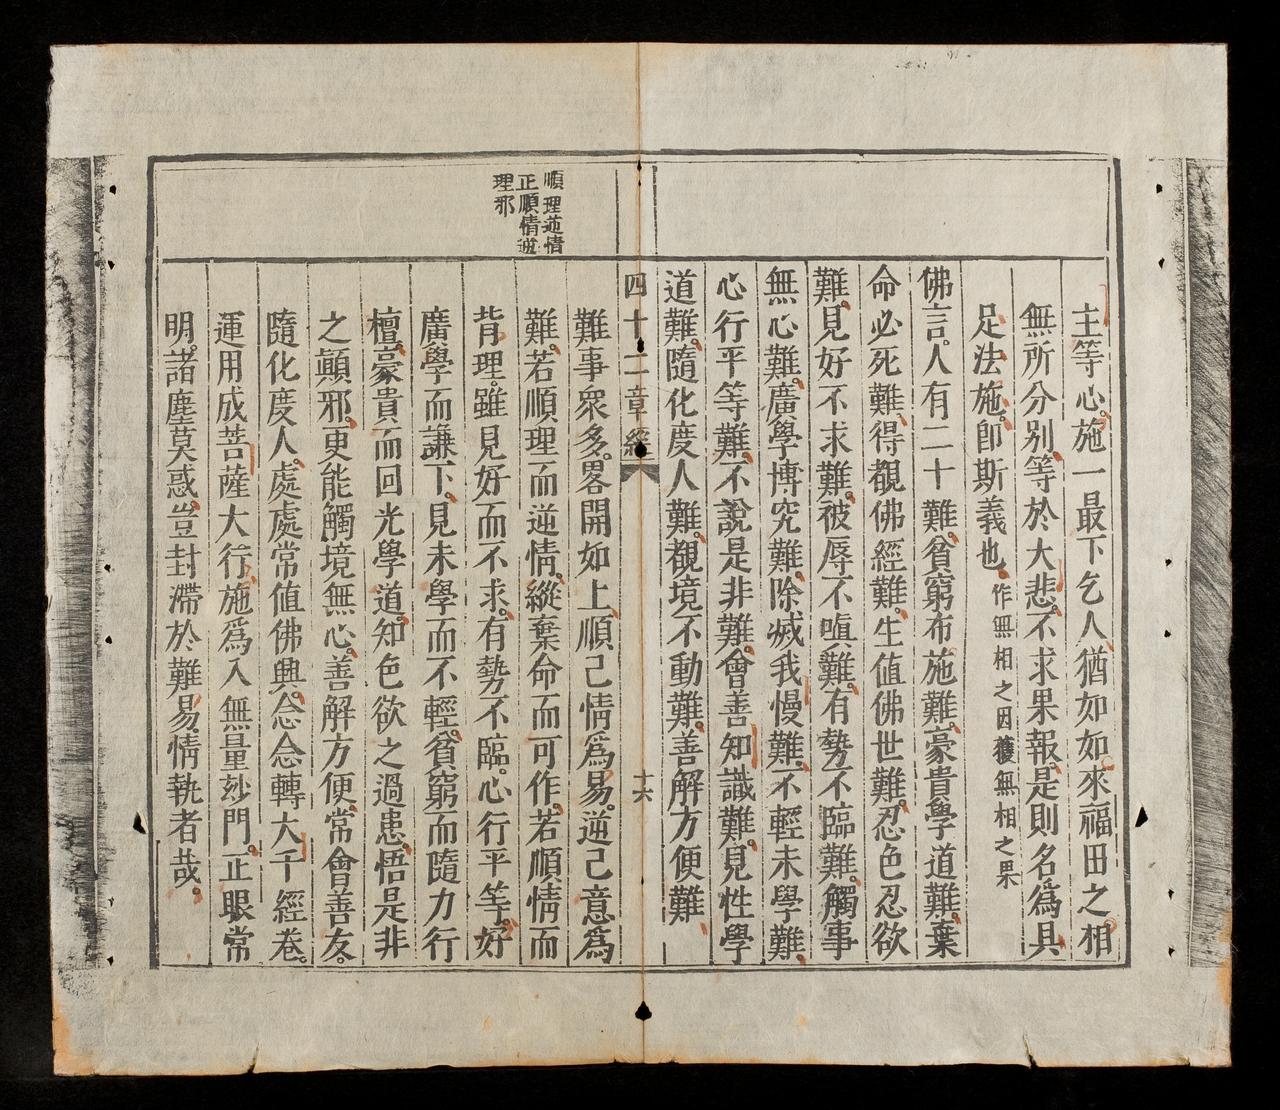 主等心。施一最下乞人、猶如如來福田之相
無所分別、等於大悲、不求果報、是則名爲具
足法施。卽斯義也。作無相之因獲無相之果
佛言。人有二十難、貧窮布施難。豪貴學道難。棄
命必死難、得覩佛經難。生值佛世難。忍色忍欲
難。見好不求難。被辱不嗔難。有勢不臨難。觸事
無心難。廣學博究難。除滅我慢難、不輕未學難。
心行平等難。不說是非難。會善知識難。見性學
道難。隨化度人難。覩境不動難。善解方便難
四十二章經
十六
順理逆情
正順情逆
理邪
難事衆多。畧開如上、順己情爲易。逆己意爲
難。若順理而逆情。縱棄命而可作。若順情而
背理。雖見好而不求。有勢不臨。心行平等。好
廣學而謙下。見未學而不輕。貧窮而隨力行
檀、豪貴而回光學道。知色欲之過患、悟是非
之顛邪。更能觸境無心。善解方便。常會善友。
隨化度人。處處常值佛興。念念轉大千經卷。
運用成菩薩大行。施爲入無量玅門。正眼常
明。諸塵莫惑。豈封滯於難易。情執者哉。